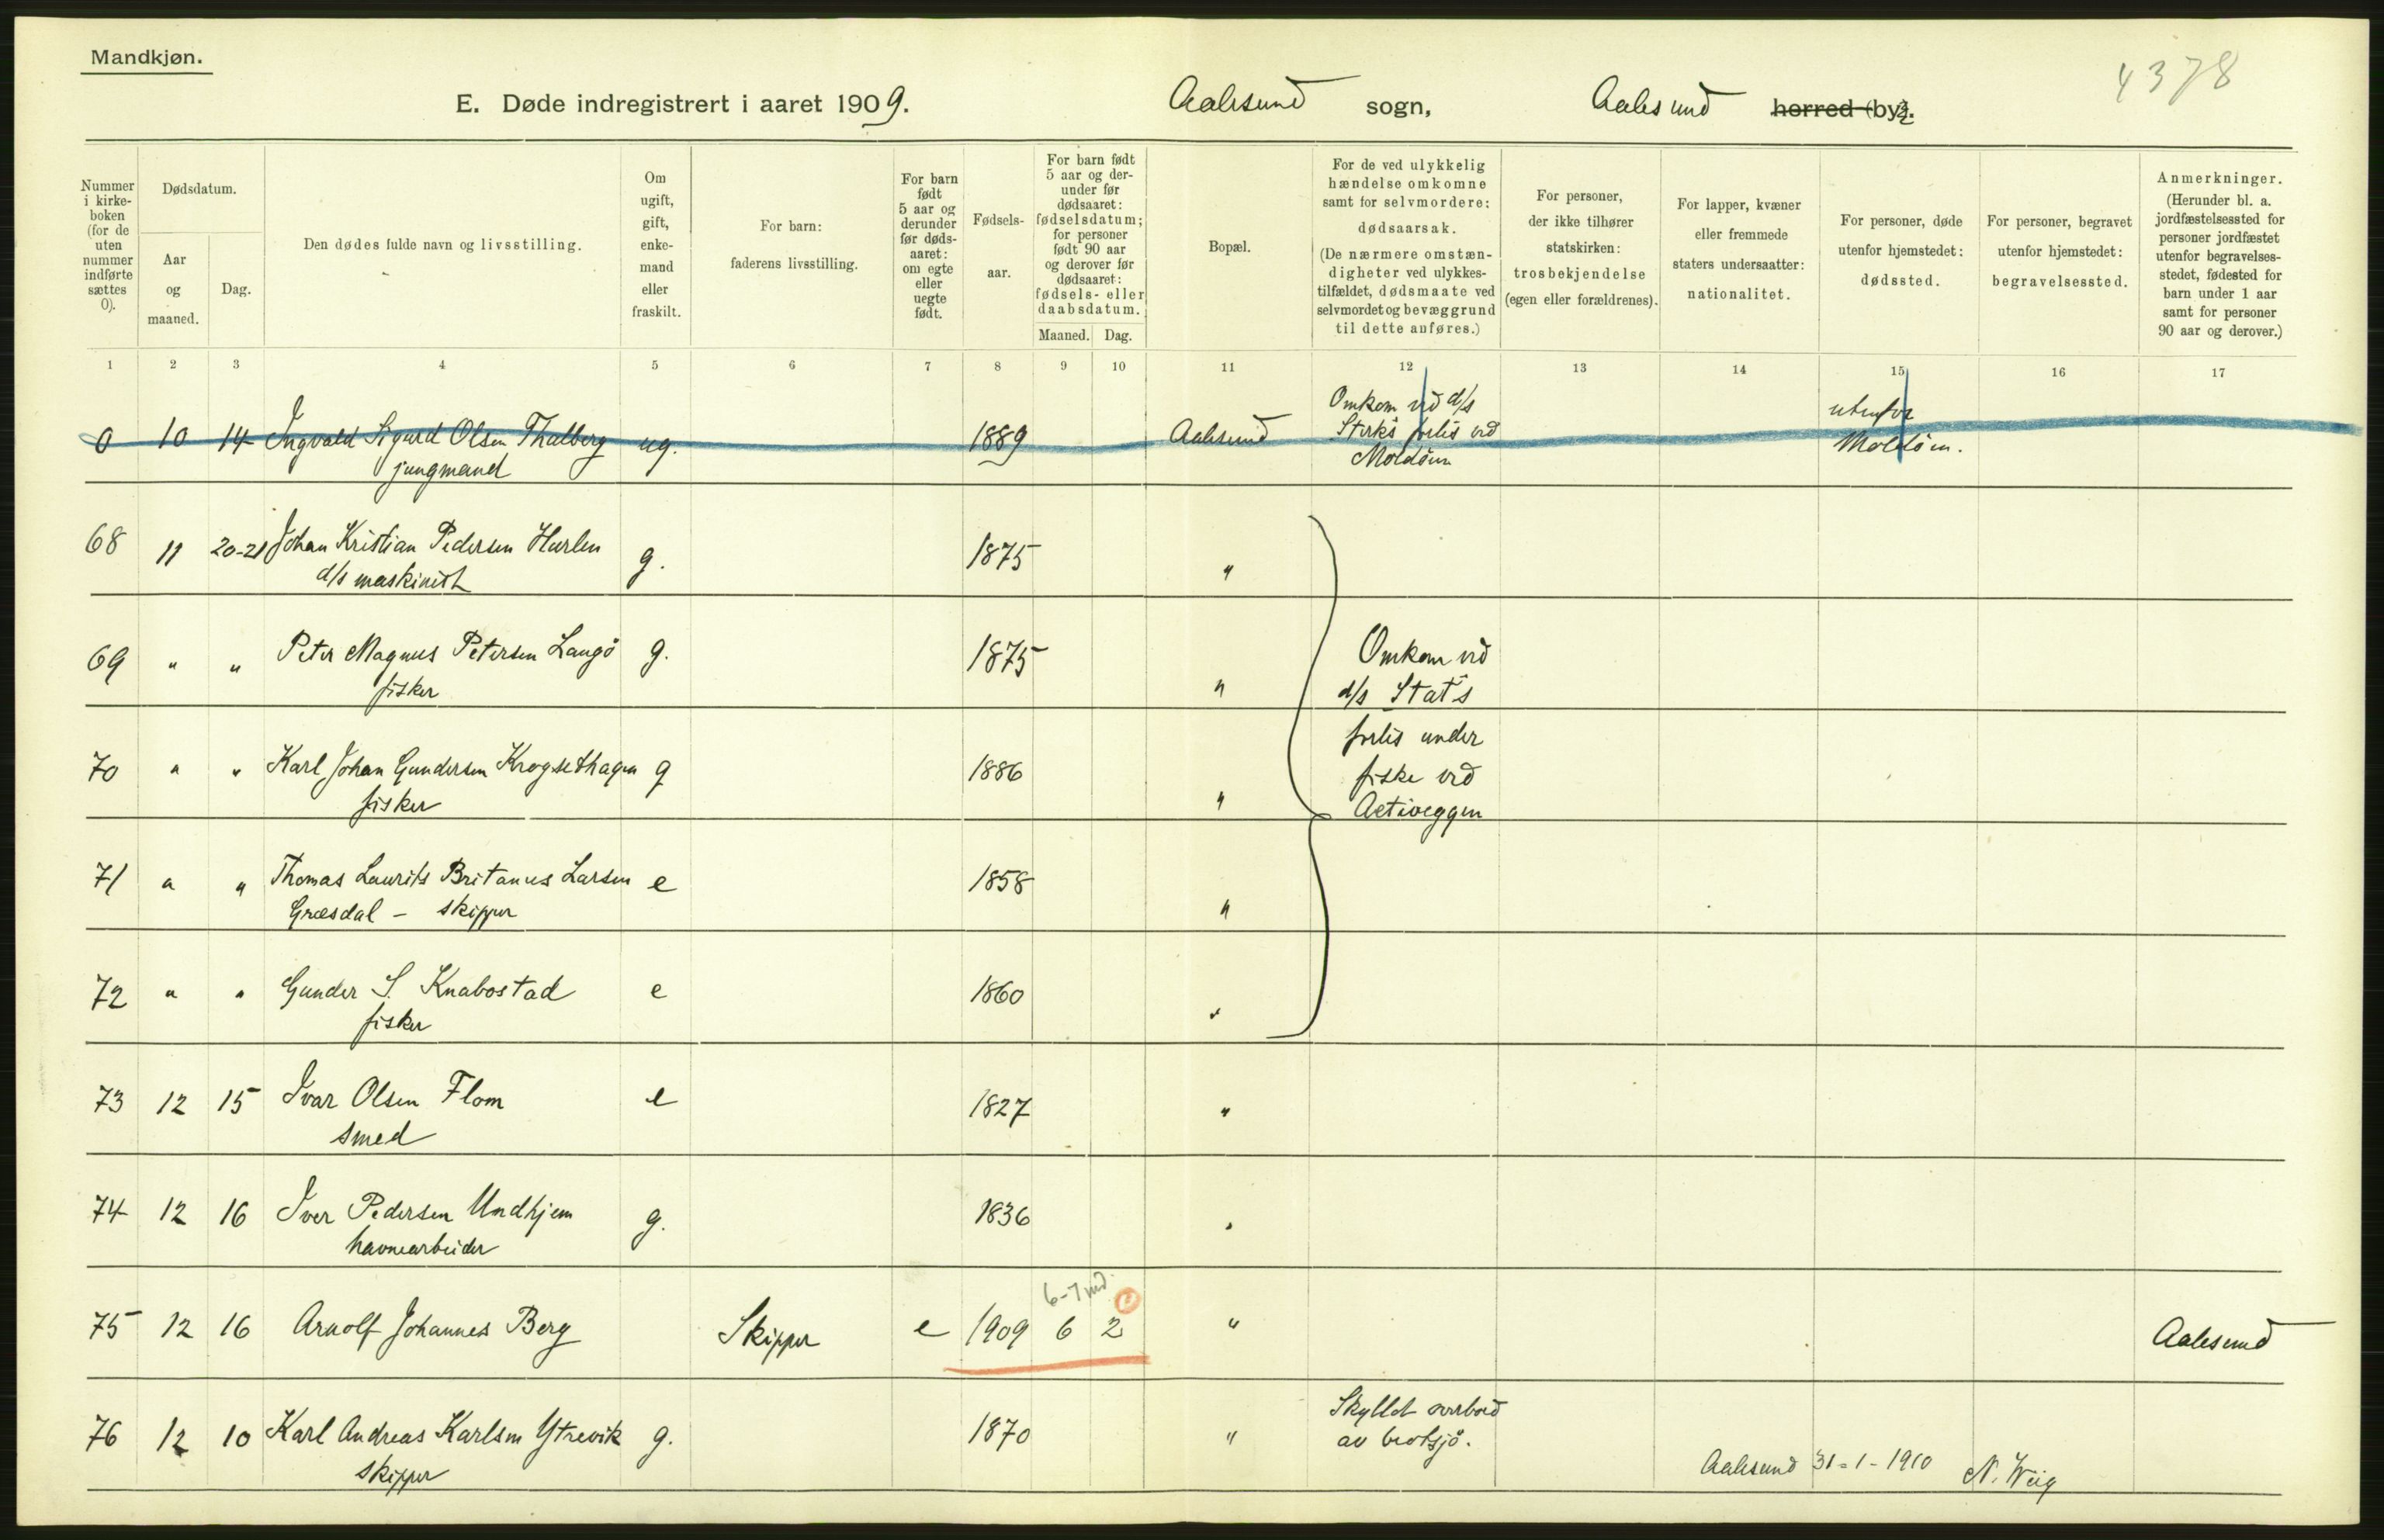 Mandkjøn.
4378
E. Døde indregistrert i aaret 1909. Aalesund sogn, Aalesund herred (by).
Nummer i kirkeboken (for de uten nummer indførte sættes 0).
Dødsdatum.
Aar og maaned.
Dag.
Den dødes fulde navn og livsstilling.
Om ugift, gift, enkemand eller fraskilt.
For barn: faderens livsstilling.
For barn født 5 aar og derunder før dødsaaret: om egte eller uegte født.
Fødselsaar.
For barn født 5 aar og derunder før dødsaaret: fødselsdatum; for personer født 90 aar og derover før dødsaaret: fødsels- eller daabsdatum.
Maaned. Dag.
Bopæl.
For de ved ulykkelig hændelse omkomne samt for selvmordere: dødsaarsak. (De nærmere omstændigheter ved ulykkestilfældet, dødsmaate ved selvmordet og bevæggrund til dette anføres.)
For personer, der ikke tilhører statskirken: trosbekjendelse (egen eller forældrenes).
For lapper, kvæner eller fremmede staters undersaatter: nationalitet.
For personer, døde utenfor hjemstedet: dødssted.
For personer, begravet utenfor hjemstedet: begravelsessted.
Anmerkninger. (Herunder bl. a. jordfæstelsessted for personer jordfæstet utenfor begravelsesstedet, fødested for barn under 1 aar samt for personer 90 aar og derover.)
1 2 3 4 5 6 7 8 9 10 11 12 13 14 15 16 17
0 10 14 Ingvald Sigurd Olsen Thalberg ug. 1889 Aalesund Omkom ved d/s Sterks forlis ved Moldöen utenfor Moldöen.
jungmand
68 11 20-21 Johan Kristian Pedersen Hurlen g. 1875 "
d/s maskinist
69 " " Peter Magnus Petersen Langö g. 1875 " Omkom ved
fisker d/s Stat's
forlis under
70 " " Karl Johan Gundersen Krogsethagen g 1886 " fiske ved
fisker Activeggen
71 " " Thomas Laurits Britanus Larsen e 1858 "
Græsdal - skipper
72 " " Gunder S. Knabostad e 1860 "
fisker
73 12 15 Ivar Olsen Flom e 1827 "
smed
74 12 16 Iver Pedersen Undhjem g. 1836 "
havnearbeider
6-7 md.
75 12 16 Arnolf Johannes Berg Skipper e 1909 6 2 " Aalesund
76 12 10 Karl Andreas Karlsen Ytrevik g. 1870 " Skyllet overbord
skipper av brotsjö.
Aalesund 31-1-1910 N. Weig